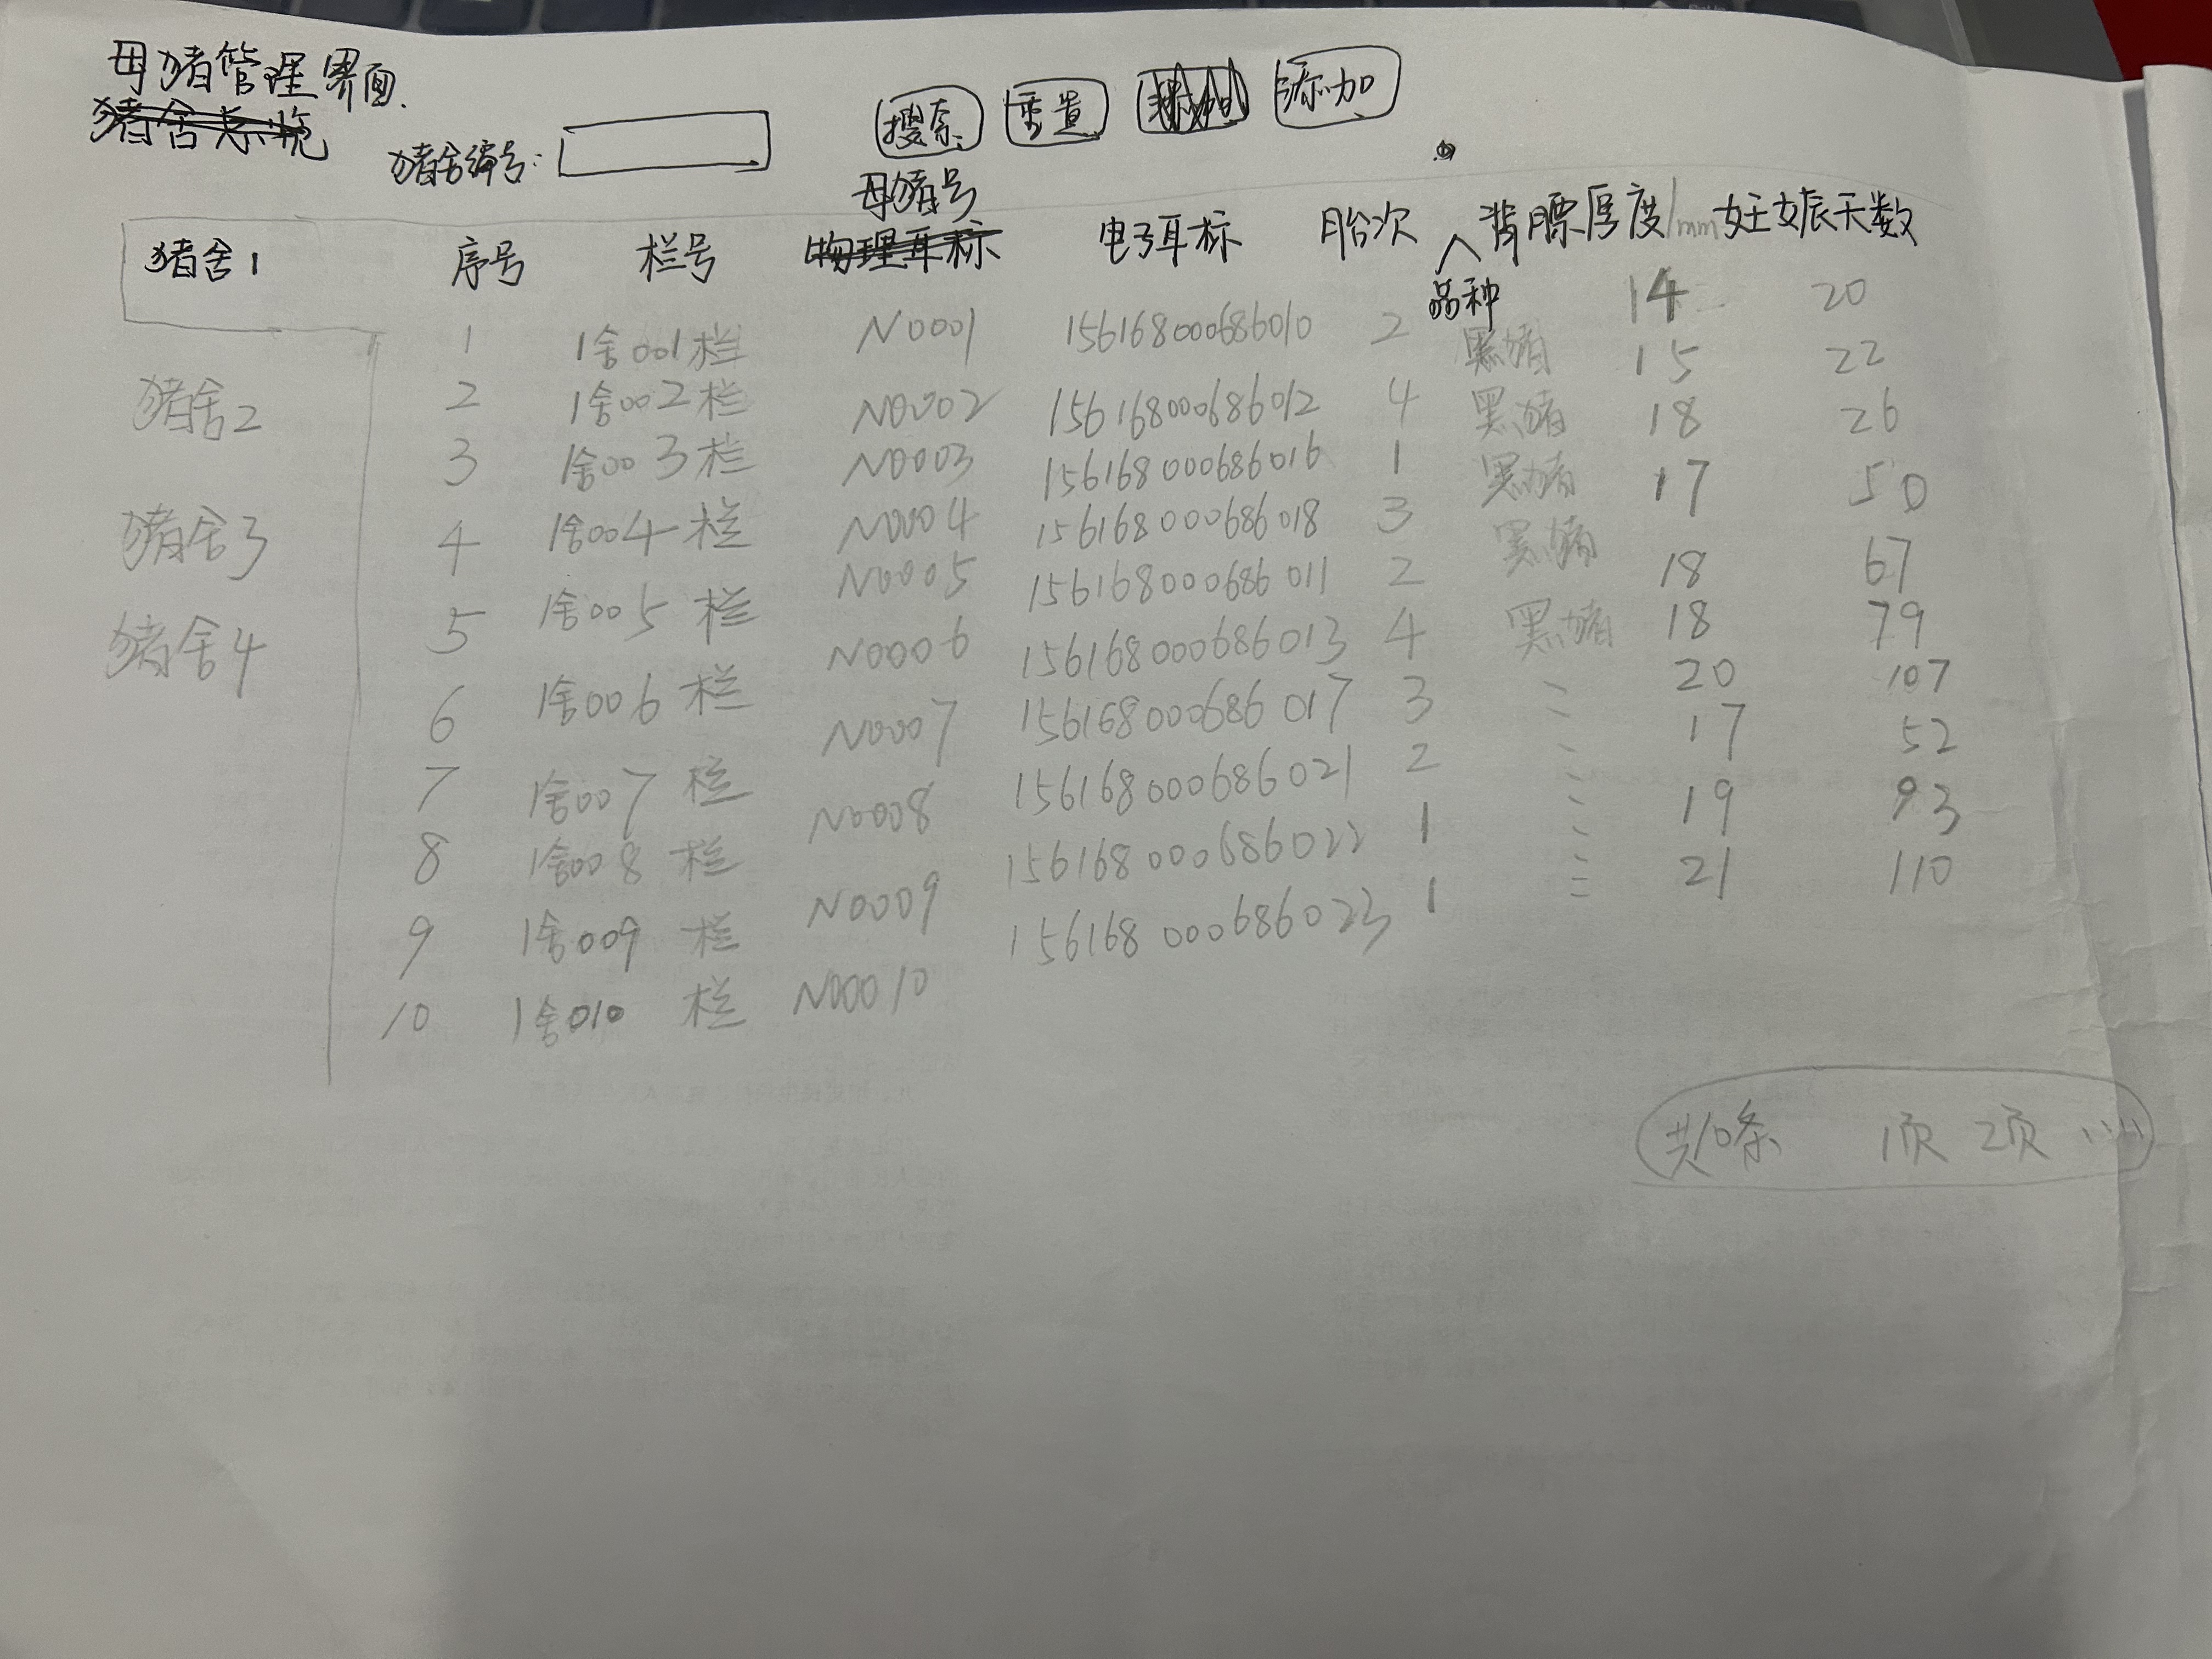 母猪管理界面.
猪舍总览
猪舍编号: 搜索 重置 添加
母猪号
猪舍1 序号 栏号 物理耳标 电子耳标 胎次 品种 背膘厚度/mm 妊娠天数
1 1舍001栏 N0001 156168000686010 2 黑猪 14 20
猪舍2 2 1舍002栏 N0002 156168000686012 4 黑猪 15 22
3 1舍003栏 N0003 156168000686016 1 黑猪 18 26
猪舍3 4 1舍004栏 N0004 156168000686018 3 黑猪 17 50
猪舍4 5 1舍005栏 N0005 156168000686011 2 黑猪 18 67
6 1舍006栏 N0006 156168000686013 4 18 79
7 1舍007栏 N0007 156168000686017 3 20 107
8 1舍008栏 N0008 156168000686021 2 17 52
9 1舍009栏 N0009 156168000686022 1 19 93
10 1舍010栏 N00010 156168000686023 1 21 110
共10条 1页 2页 ......